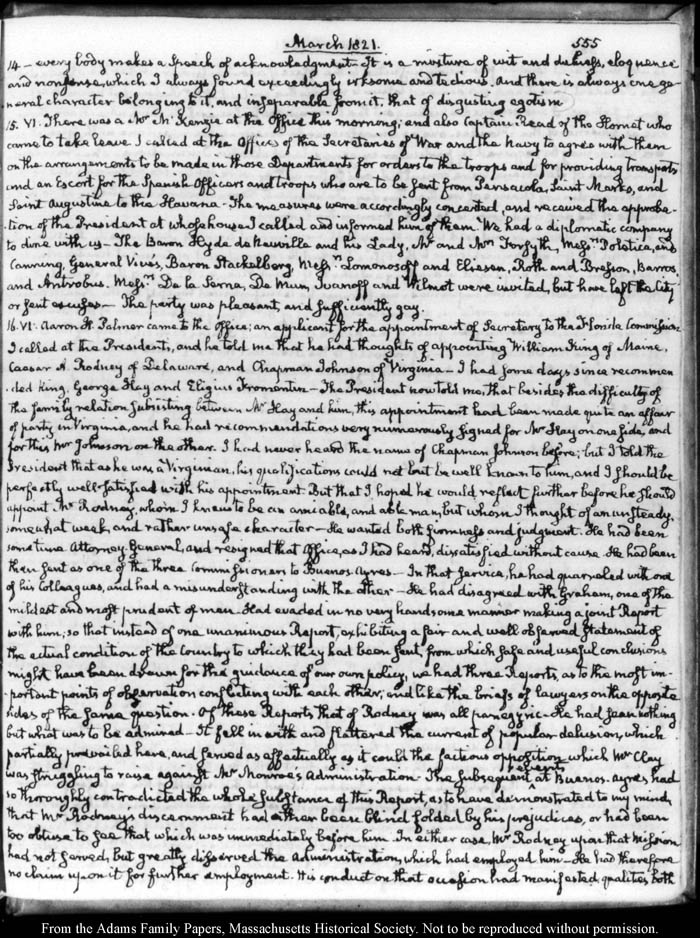 March 1821.
555
14 – every body makes a Speech of acknowledgment – It is a mixture of wit and dulness, eloquence
and nonsense, which I always found exceedingly irksome and tedious. And there is always one ge-
neral character belonging to it, and inseparable from it, that of disgusting egotism
15. VI. There was a Mr McKenzie at the Office this morning; and also Captain Read of the Hornet who
came to take leave. I called at the Offices of the Secretaries of War and the Navy to agree with them
on the arrangements to be made in those Departments for orders to the troops and for providing transports
and an Escort for the Spanish Officers and troops who are to be sent from Pensacola, Saint Marks, and
Saint Augustine to the Havana – The measures were accordingly concerted, and received the approba-
tion of the President at whose house I called and informed him of them. We had a diplomatic company
to dine with us – The Baron Hyde de Neuville and his Lady, Mr and Mrs Forsyth, Messrs Poletica, and
Canning, General Vivés, Baron Stackelberg, Messrs Lomonosoff and Eliesen, Roth and Bresson, Barros,
and Antrobus. Messrs De la Serna, De Mun, Ivanoff and Wilmot were invited, but have left the City
or sent excuses – The party was pleasant, and sufficiently gay.
16. VI. Aaron H. Palmer came to the Office; an applicant for the appointment of Secretary to the Florida Commission
I called at the Presidents, and he told me that he had thoughts of appointing William King of Maine,
Caesar A. Rodney of Delaware, and Chapman Johnson of Virginia – I had some days since recommen
-ded King, George Hay and Eligius Fromentin – The President now told me, that besides the difficulty of
the family relation subsisting between Mr Hay and him, this appointment had been made quite an affair
of party in Virginia, and he had recommendations very numerously signed for Mr Hay on one side, and
for this Mr Johnson on the other. I had never heard the name of Chapman Johnson before; but I told the
President that as he was a Virginian, his qualifications could not but be well known to him, and I should be
perfectly well satisfied with his appointment. But that I hoped he would reflect further before he should
appoint Mr Rodney, whom I knew to be an amiable, and able man, but whom I thought of an unsteady,
somewhat weak and rather unsafe character – He wanted both firmness and judgment. He had been
sometime Attorney General, and resigned that Office, as I had heard, dissatisfied without cause. He had been
then sent as one of the three Commissioners to Buenos Ayres – In that service, he had quarreled with one
of his Colleagues, and had a misunderstanding with the other – He had disagreed with Graham, one of the
mildest and most prudent of men. Had evaded in no very handsome manner making a joint Report
with him; so that instead of one unanimous Report, exhibiting a fair and well observed Statement of
the actual condition of the Country to which they had been sent, from which safe and useful conclusions
might have been drawn for the guidance of our own policy, we had three Reports, as to the most im-
-portant points of observation conflicting with each other; and like the briefs of lawyers on the opposite
sides of the same question. Of these Reports that of Rodney was all panegyric – He had seen nothing
but what was to be admired – It fell in with and flattered the current of popular delusion, which
partially prevailed here, and served as effectually as it could the factious opposition which Mr Clay
was struggling to raise against Mr Monroe's Administration – The subsequent events at Buenos Ayres, had
so thoroughly contradicted the whole substance of this Report, as to have demonstrated to my mind,
that Mr Rodney's discernment had either been blind folded by his prejudices, or had been
too obtuse to see that which was immediately before him. In either case, Mr Rodney upon that Mission
had not served, but greatly disserved the administration, which had employed him – He had therefore
no claim upon it for further employment. His conduct on that occasion had manifested qualities, both
From the Adams Family Papers, Massachusetts Historical Society. Not to be reproduced without permission.